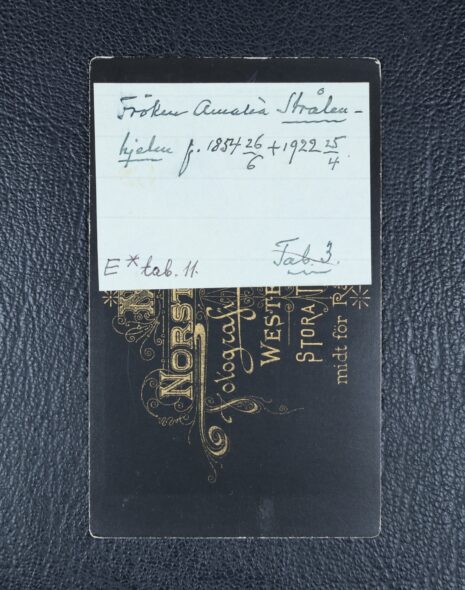 Fröken Amalia Strålen-
hjelm f. 1854 26/6 + 1922 25/4.
E* tab. 11.
Tab. 3.
NORST
Fotografi
WESTE
STORA T
midt för R